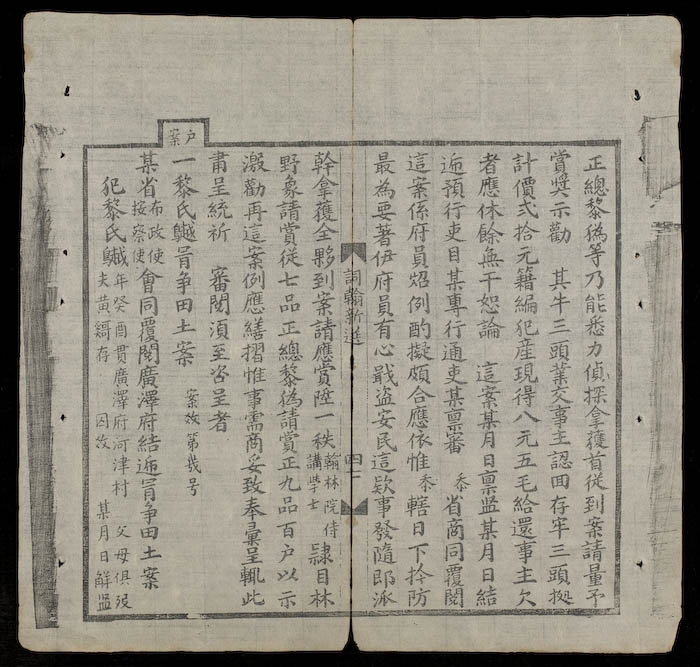 正總黎為等乃能悉力偵探拿獲首從到案請量予
賞奬示勸 其牛三頭業交事主認回存牢三頭摡
計價弍拾元籍編犯産現得八元五毛給還事主欠
者應休餘無干恕論 這案某月日禀监某月日結
逓預行吏目某專行通吏某禀審 忝省商同覆閱
這案係府員炤例酌擬頗合應依惟 忝轄日下扲防
最為要著伊府員有心戢盗安民這欵事發隨即派
詞翰新選
四十
幹拿獲全夥到案請應賞陞一秩翰林院侍講學士隷目林
野象請賞從七品正總黎為請賞正九品百户以示
激勸再這案例應繕摺惟事需商妥致奉彙呈輒此
肅呈統祈 審閱須至咨呈者
户案
一黎氏 冐争田土案 案改第幾号
某省布政使按察使會同覆閱廣澤府結逓冐争田土案
犯黎氏 年癸酉貫廣澤府河津村 父母俱殁
夫黄 存 因故 某月日解监